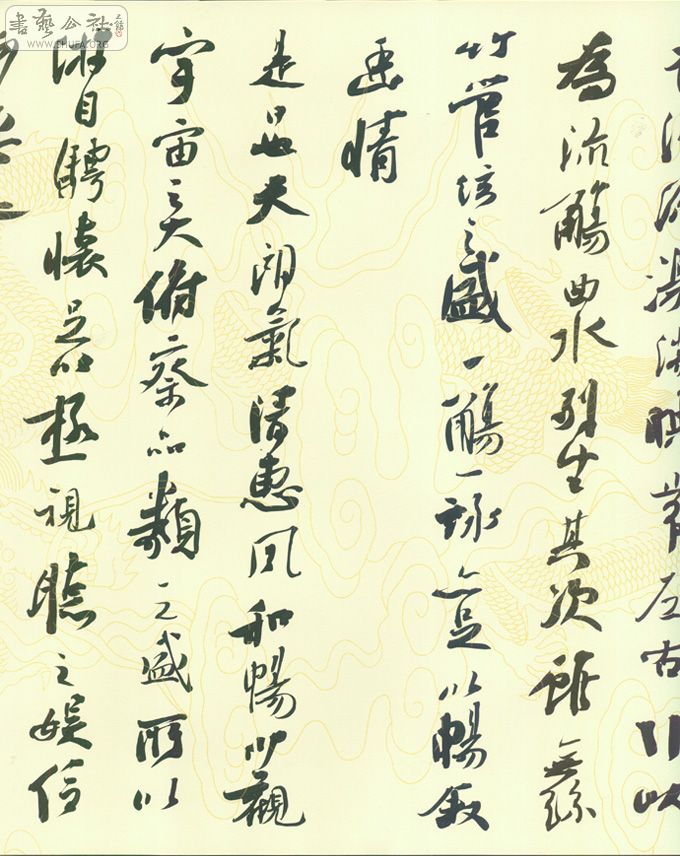 書藝公社
WWW.SHUFA.ORG
有清流激湍映帶左右引以
為流觴曲水列坐其次雖無絲
竹管弦之盛一觴一詠亦足以暢敘
幽情
是日也天朗氣清惠風和暢仰觀
宇宙之大俯察品類之盛所以
游目騁懷足以極視聽之娛信